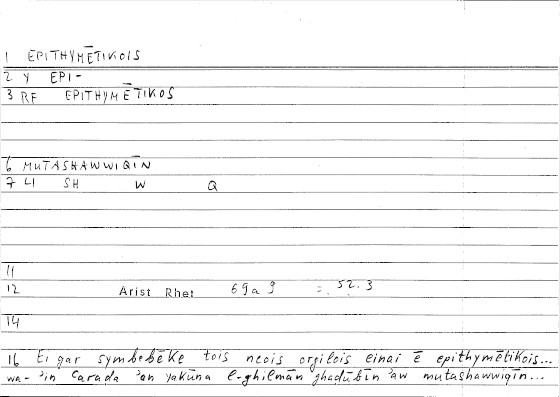 1 EPITHYMĒTIKOIS
2 Y EPI-
3 RF EPITHYMĒTIKOS
6 MUTASHAWWIQĪN
7 LI SH W Q
11
12 Arist Rhet 69a9 = 52.3
14
16 Ei gar symbebēke tois neois orgilois einai ē epithymētikois...
wa- ʾin ʿarada ʾan yakūna l-ghilmān ghadūbīn ʾaw mutashawwiqīn...